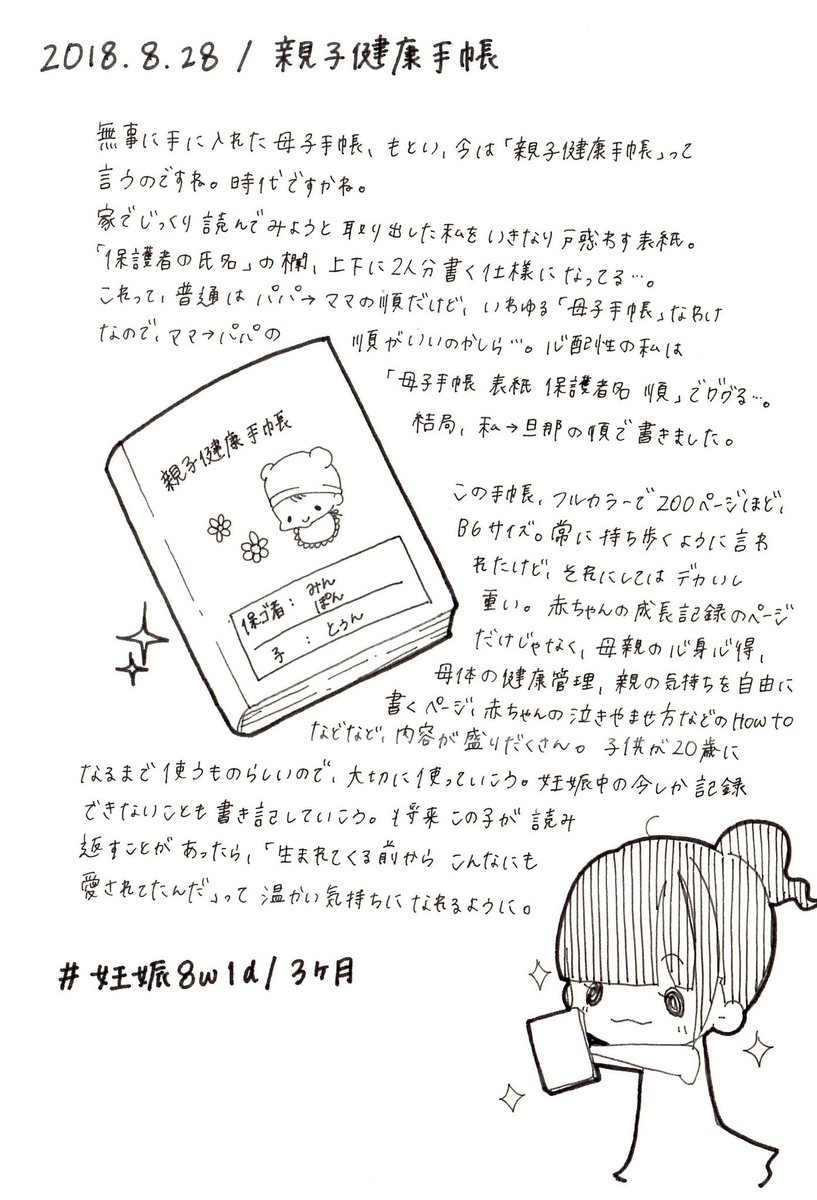 2018.8.28 / 親子健康手帳
無事に手に入れた母子手帳、もとい、今は「親子健康手帳」って
言うのですね。時代ですかね。
家でじっくり読んでみようと取り出した私をいきなり戸惑わす表紙。
「保護者の氏名」の欄、上下に2人分書く仕様になってる…。
これって、普通はパパ→ママの順だけど、いわゆる「母子手帳」なわけ
なので、ママ→パパの順がいいのかしら…。心配性の私は
「母子手帳 表紙 保護者名 順」でググる…。
結局、私→旦那の順で書きました。
親子健康手帳
保ゴ者: みん
ぽん
子 : とぅん
この手帳、フルカラーで200ページほど、
B6サイズ。常に持ち歩くように言わ
れたけど、それにしてはデカいし
重い。赤ちゃんの成長記録のページ
だけじゃなく、母親の心身心得、
母体の健康管理、親の気持ちを自由に
書くページ、赤ちゃんの泣きやませ方などのHow to
などなど、内容が盛りだくさん。子供が20歳に
なるまで使うものらしいので、大切に使っていこう。妊娠中の今しか記録
できないことも書き記していこう。将来この子が読み
返すことがあったら、「生まれてくる前からこんなにも
愛されてたんだ」って温かい気持ちになれるように。
#妊娠8w1d/3ケ月